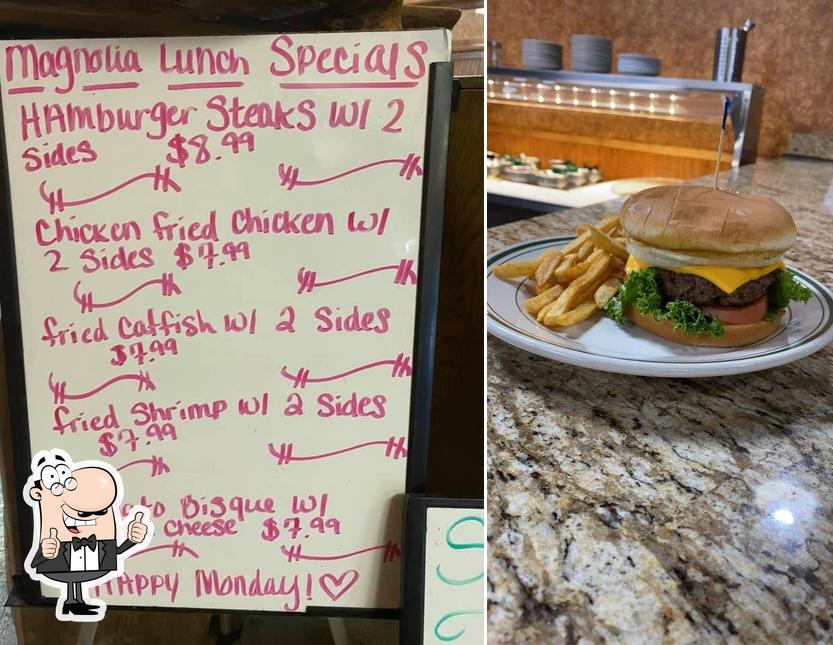 Magnolia Lunch Specials
Hamburger Steaks W/ 2
Sides $8.99
Chicken fried Chicken W/
2 Sides $7.99
fried Catfish W/ 2 Sides
$7.99
fried Shrimp W/ 2 Sides
$7.99
Bisque W/
Cheese $7.99
HAPPY Monday!